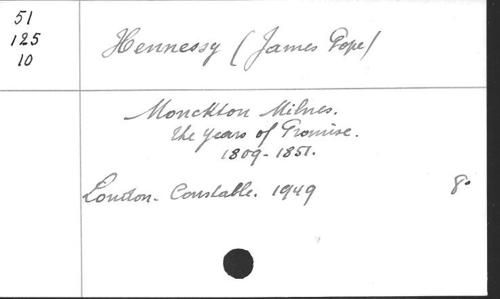 51
125
10
Hennessy (James Pope)
Monckton Milnes.
The years of Promise.
1809-1851.
London. Constable. 1949
8º